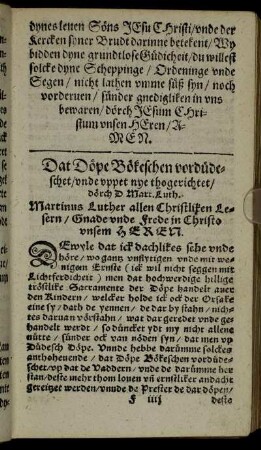 dynes leuen Söns JEsu CHristi/vnde der
Kercken syner Brudt darinne betekent/Wy
bidden dyne grundtlose Güdicheit/du willest
solcke dyne Scheppinge/Ordeninge vnde
Segen/nicht lathen vmme süß syn/noch
vorderuen/sünder gnedigliken in vns
bewaren/dörch JEsum CHri-
stum vnsen HEren/A-
MEN.
Dat Döpe Bökeschen vordüde-
schet/vnde vppet nye thogerichtet/
dörch D. Mart. Luth.
Martinus Luther allen Christliken Le-
sern/Gnade vnde Frede in Christo
vnsem HEREN.
DEwyle dat ick dachlikes sehe vnde
höre/wo gantz vnflytigen vnde mit we-
nigem Ernste (ick wil nicht seggen mit
Lichtferdicheit) men dat hochwerdige hillige
tröstlike Sacramente der Döpe handelt auer
den Kindern/welcker holde ick ock der Orsake
eine sy/dath de yennen/de dar by stahn/nich-
tes daruan vörstahn/wat dar geredet vnde ge-
handelt werdt/so düncket ydt my nicht allene
nütte/sünder ock van nöden syn/dat men vp
Düdesch Döpe. Vnnde hebbe darümme solckes
anthoheuende/dat Döpe Bökeschen vordüde-
schet/vp dat de Vaddern/vnde de darümme her
stan/deste mehr thom louen vñ ernstliker andacht
gereitzet werden/vnnde de Prester de dar döpen/
F iiij deste